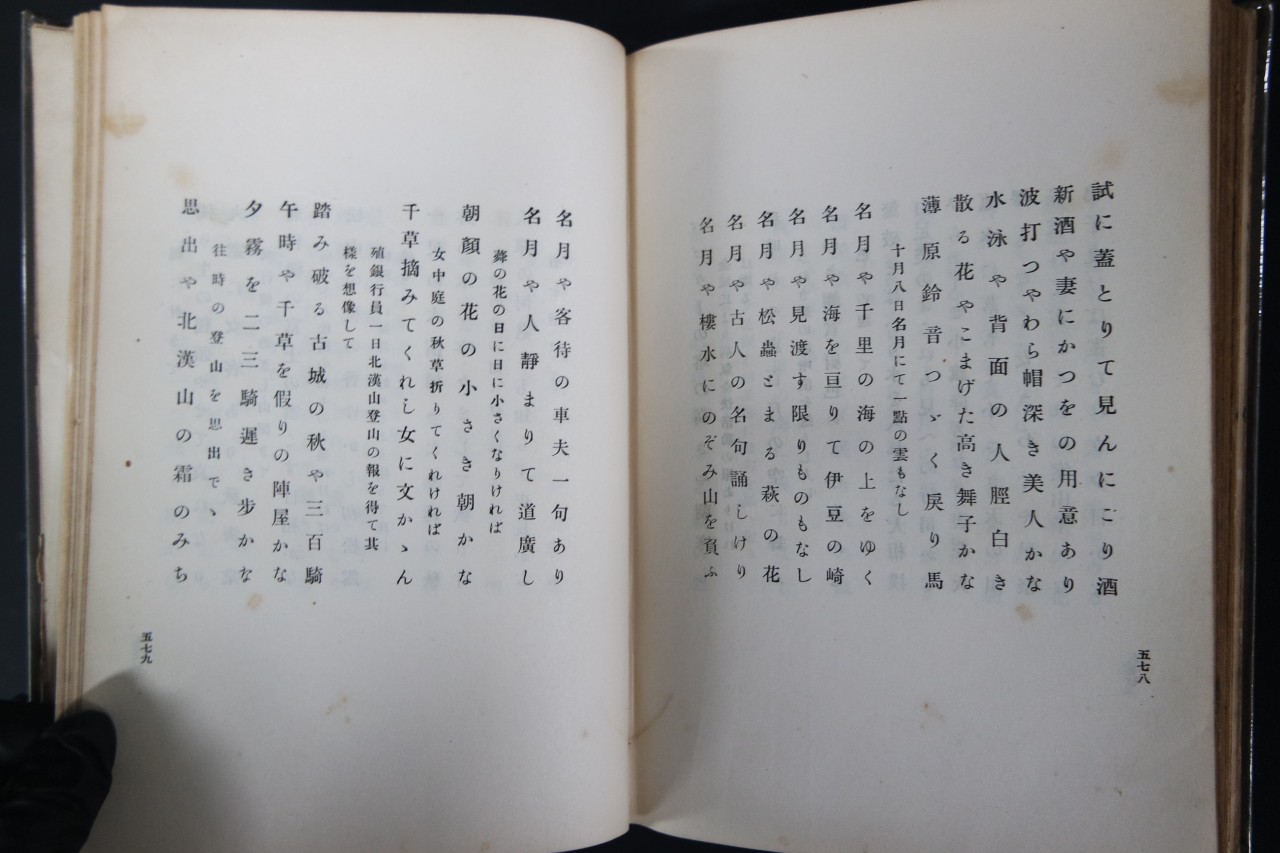 試に蓋とりて見んにごり酒
新酒や妻にかつをの用意あり
波打つやわら帽深き美人かな
水泳や背面の人脛白き
散る花やこまげた高き舞子かな
薄原鈴音つゞく戻り馬
十月八日名月にて一點の雲もなし
名月や千里の海の上をゆく
名月や海を亘りて伊豆の崎
名月や見渡す限りものもなし
名月や松蟲とまる萩の花
名月や古人の名句誦しけり
名月や樓水にのぞみ山を負ふ
五七八
名月や客待の車夫一句あり
名月や人靜まりて道廣し
蕣の花の日に日に小さくなりければ
朝顔の花の小さき朝かな
女中庭の秋草折りてくれければ
千草摘みてくれし女に文かゝん
殖銀行員一日北漢山登山の報を得て其
樣を想像して
踏み破る古城の秋や三百騎
午時や千草を假りの陣屋かな
夕霧を二三騎遲き步かな
往時の登山を思出でゝ
思出や北漢山の霜のみち
五七九